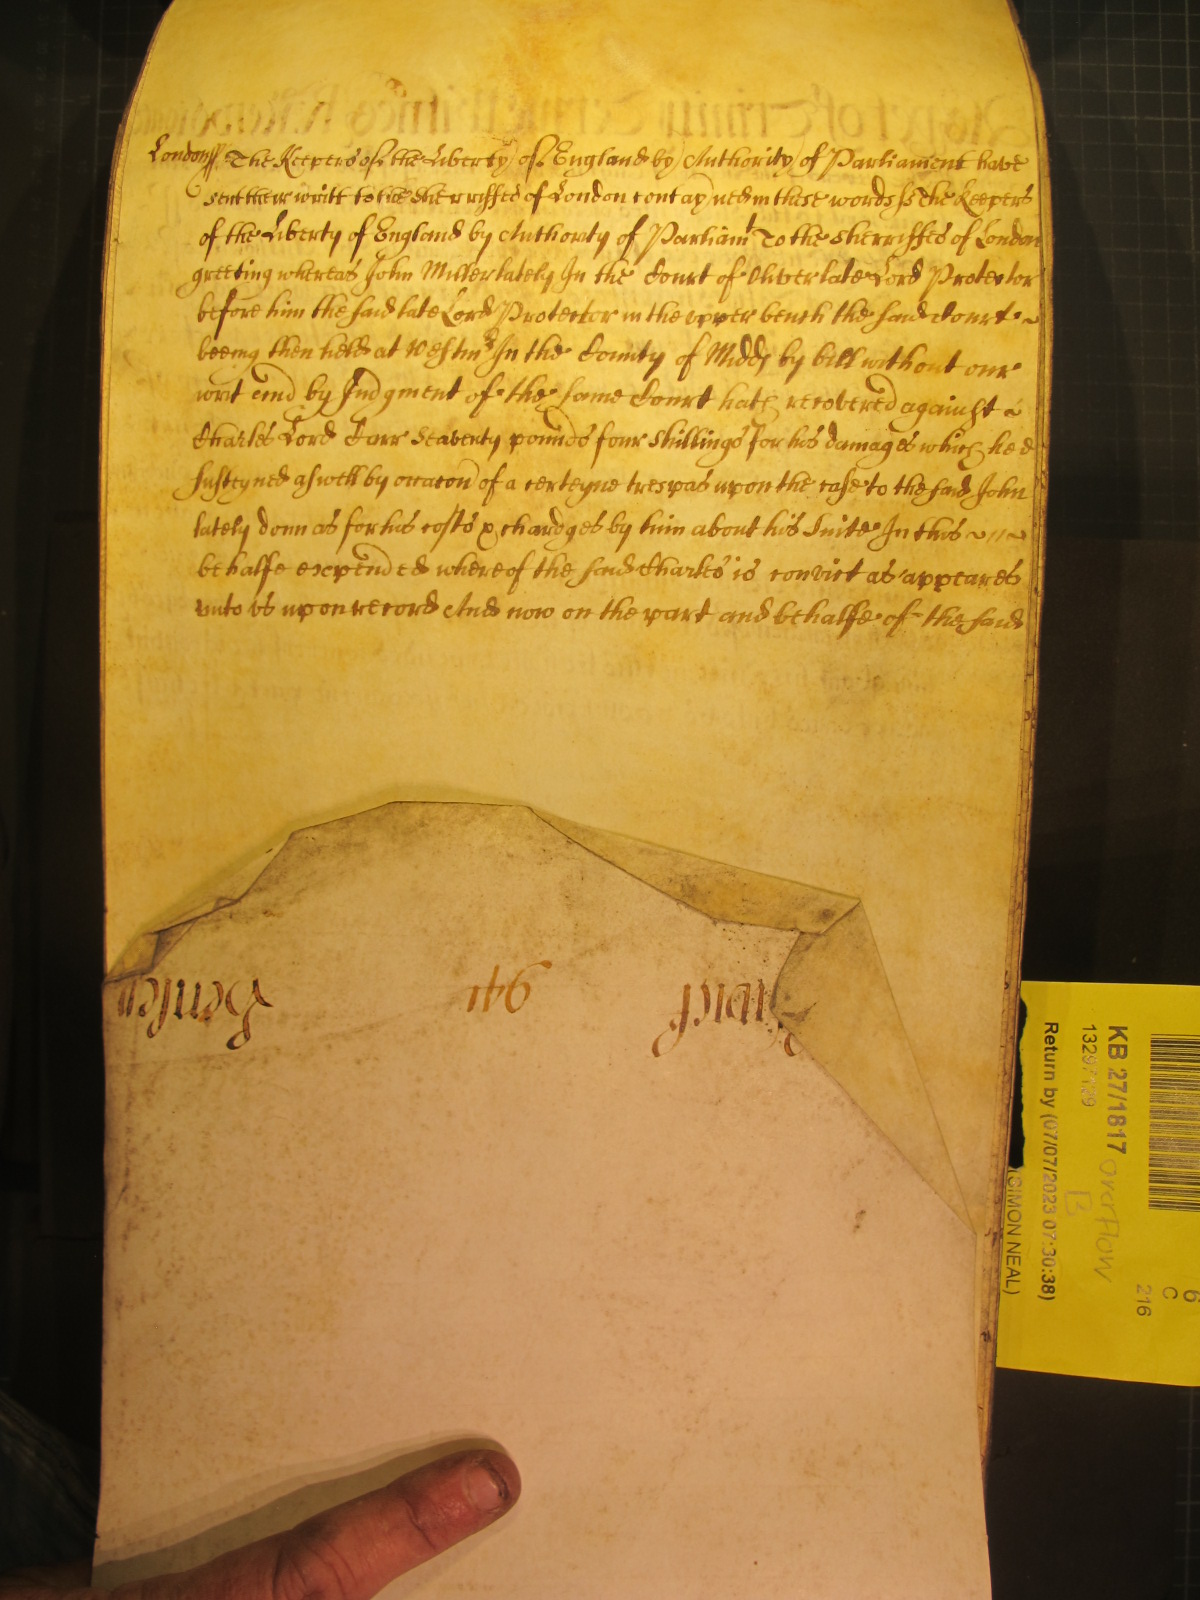 London ss The Keepers of the Liberty of England by Authority of Parliament have
sent their writt to the Sherriffes of London contayned in these words ss The Keepers
of the Liberty of England by Authority of Parliamt To the Sherriffes of London
greeting whereas John Miller lately In the Court of Oliver late Lord Protector
before him the said late Lord Protector in the upper bench the said Court
beeing then held at Westmr In the County of Midd by bill without our
writ and by Judgment of the same Court hath recovered against
Charles Lord Carr Seaventy pounds four shillings for his damages which hee
susteyned aswell by occacon of a certeyne trespas upon the case to the said John
lately donn as for his costs & chardges by him about his Suite In this
behalfe expended whereof the said Charles is convict as appeares
unto us upon record And now on the part and behalfe of the said
941
KB 27/1817 overflow
13297129
Return by (07/07/2023 07:30:38)
(CIMON NEAL)
B
6
C
216